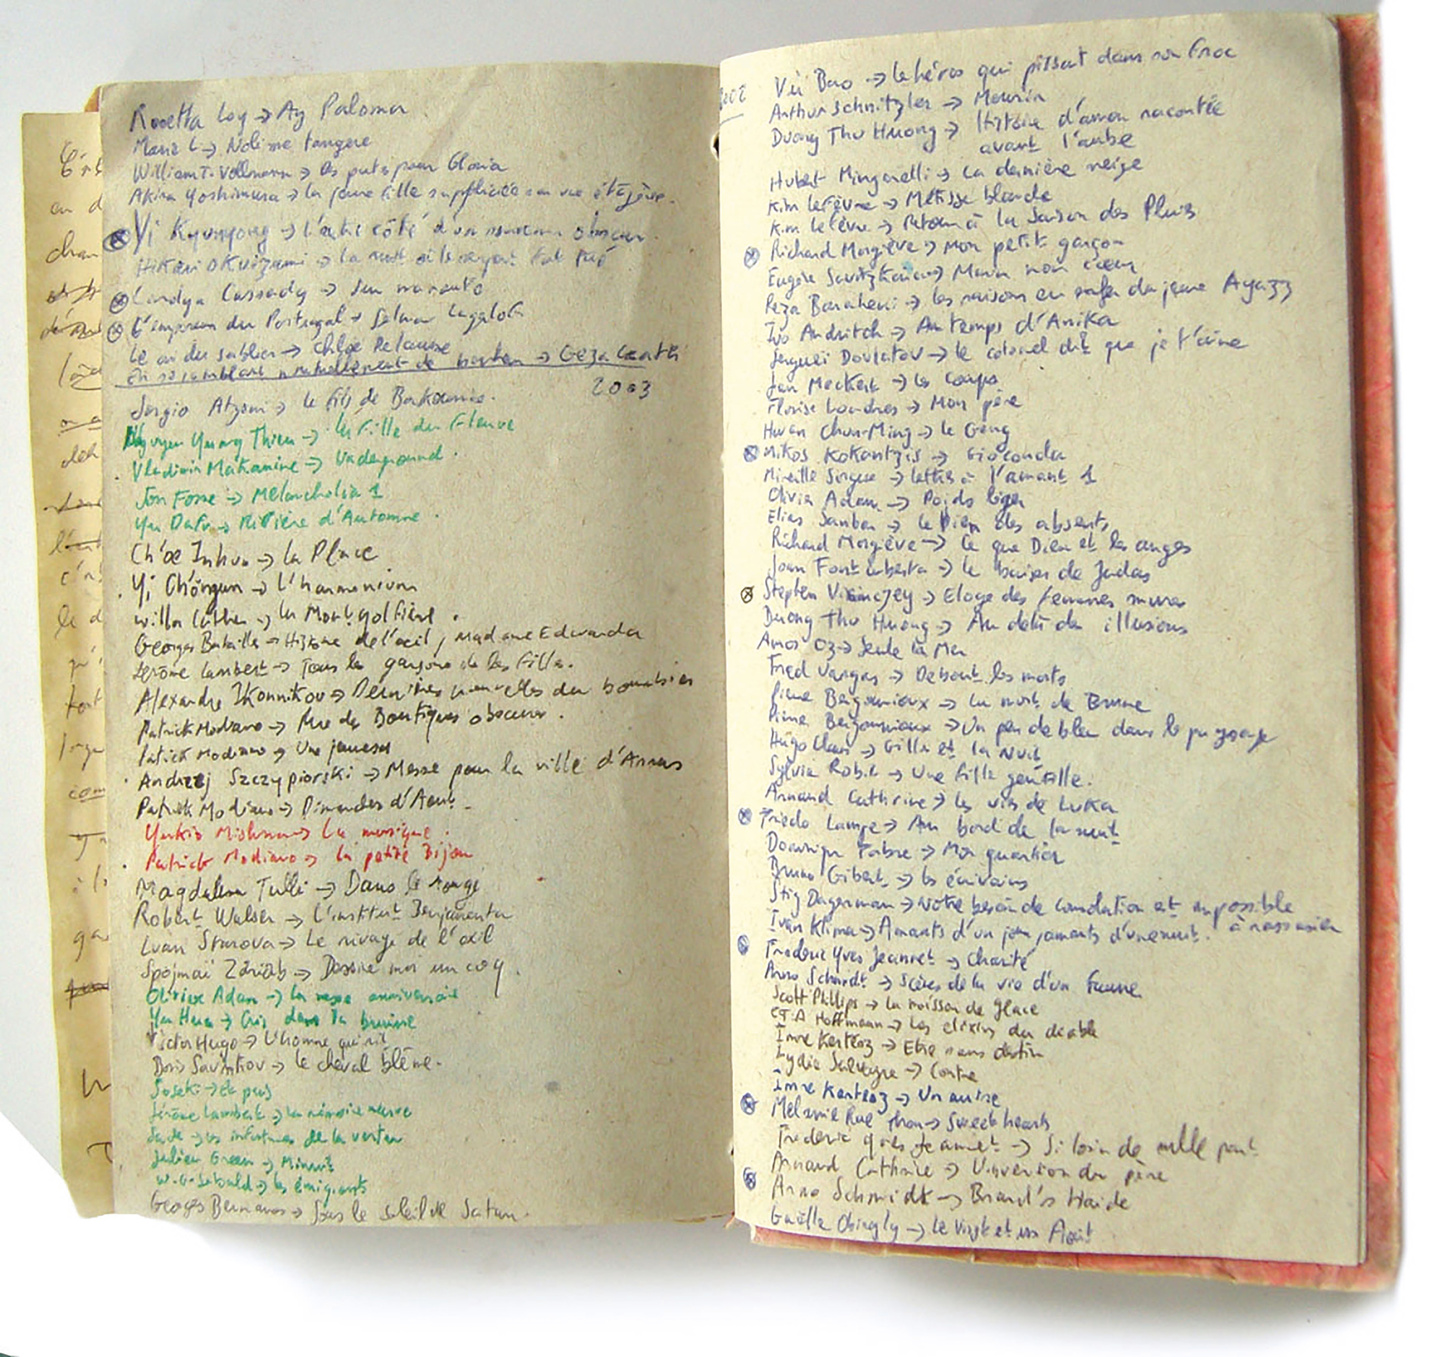 Rosetta Loy → Ay Paloma
Marie L → Noli me tangere
William T. Vollmann → des putes pour Gloria
Akira Yoshimura → la jeune fille suppliciée sur une étagère.
Yi Kyunyong → L'autre côté d'un souvenir obscur.
Hikari Okuizumi → la nuit où le serpent fut tué
Carolyn Cassady → Sur ma route
L'empereur du Portugal → Selma Lagalof
Le or du sablier → Chloé Delaume
En se comblant mutuellement de bonheur → Géza Csath
2003
Sergio Atzeni → le fils de Bakounine.
Nguyen Quang Thieu → la fille du fleuve
Vladimir Makanine → Underground.
Jon Fosse → Melancholia 1
Yu Dafu → Rivière d'Automne.
Ch'oe Inhun → La Place
Yi Ch'ongun → L'harmonium
Willa Cather → la Montgolfière.
Georges Bataille → Histoire de l'œil, Madame Edwarda
Jérôme Lambert → Tous les garçons de les filles.
Alexandre Ikonnikov → Dernières nouvelles du bourbier
Patrick Modiano → Rue des Boutiques obscures.
Patrick Modiano → Une jeunesse
Andrzej Szczypiorski → Messe pour la ville d'Arras
Patrick Modiano → Dimanches d'Août.
Yukio Mishima → La musique.
Patrick Modiano → la petite Bijou
Magdalena Tulli → Dans le rouge
Robert Walser → L'institut Benjamenta
Luan Starova → Le rivage de l'exil
Spojmaï Zariâb → Dessine moi un coq.
Olivier Adam → la messe anniversaire
Yu Hua → Cris dans la bruine
Victor Hugo → L'homme qui rit
Boris Savinkov → le cheval blême.
Soseki → Le puis
Jérôme Lambert → la mémoire neuve
Sade → les infortunes de la vertu
Julien Green → Minuit
W.G. Sebald → les émigrants
Georges Bernanos → Sous le soleil de Satan.
2002
Vû Bao → le héros qui pissait dans son froc
Arthur Schnitzler → Mourir
Duong Thu Huong → Histoire d'amour racontée
avant l'aube
Hubert Mingarelli → La dernière neige
Kim Lefèvre → Métisse blanche
Kim Lefèvre → Retour à la Saison des Pluies
Richard Morgiève → Mon petit garçon
Eugène Savitzkaya → Marin mon cœur
Reza Baraheni → les saisons en enfer du jeune Ayazz
Ivo Andritch → Au temps d'Anika
Serguei Dovlatov → le colonel dit que je t'aime
Jean Meckert → les coups
Florise Londres → Mon père
Hwan Chun-Ming → le Gong
Nikos Kokantzis → Gioconda
Mireille Sorgue → lettres à l'amant 1
Olivier Adam → Poids léger
Elias Sanbar → le Bien des absents
Richard Morgiève → Ce que Dieu et les anges
Joan Fontcuberta → le baiser de Judas
Stephen Vizinczey → Eloge des femmes mures
Duong Thu Huong → Au delà des illusions
Amos Oz → Seule la Mer
Fred Vargas → Debout les morts
Pierre Bergounioux → La mort de Brune
Pierre Bergounioux → Un peu de bleu dans le paysage
Hugo Claus → Gilles et la Nuit
Sylvie Robic → Une fille gentille.
Arnaud Cathrine → les vies de Luka
Friedo Lampe → Au bord de la nuit
Dominique Fabre → Mon quartier
Bruno Gibert → les écrivains
Stig Dagerman → Notre besoin de consolation est impossible
à rassasier
Ivan Klima → Amants d'un jour, amants d'une nuit.
Frederic Yves Jeannet → Charité
Arno Schmidt → Scènes de la vie d'un Faune
Scott Phillips → La moisson de glace
E.T.A Hoffmann → Les elixirs du diable
Imre Kertész → Etre sans destin
Lydie Salvayre → Contre
Imre Kertész → Un autre
Mélanie Rae Thon → Sweethearts
Frederic Yves Jeannet → Si loin de nulle part
Arnaud Cathrine → L'invention du père
Arno Schmidt → Brand's Haide
Gaëlle Obiégly → le Vingt et un Août